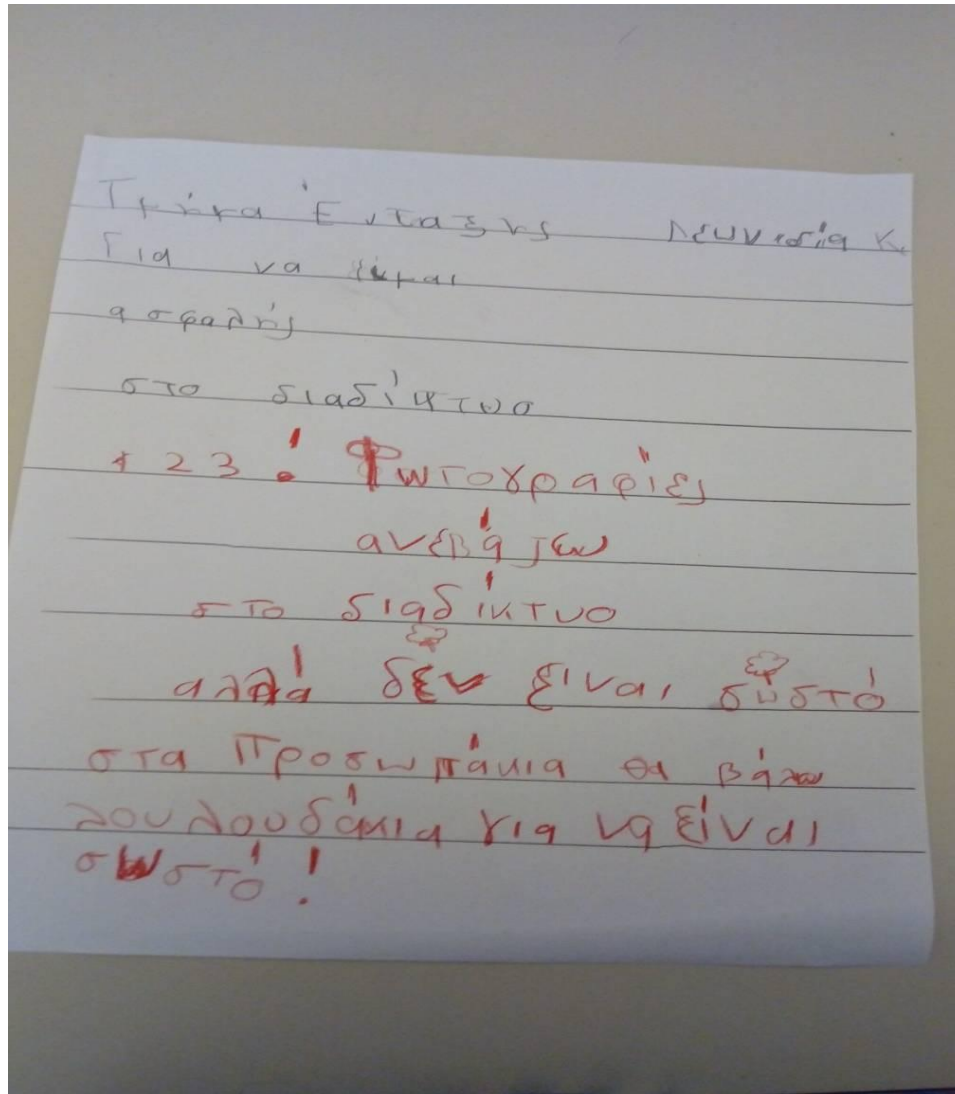 Τμήμα Ένταξης Κ.
Για να είμαι
ασφαλής
στο διαδίκτυο
1 2 3 ! Φωτογραφίες
ανεβάζω
στο διαδίκτυο
αλλά δεν είναι σωστό
στα προσωπάκια θα βάλω
λουλουδάκια για να είναι
σωστό !